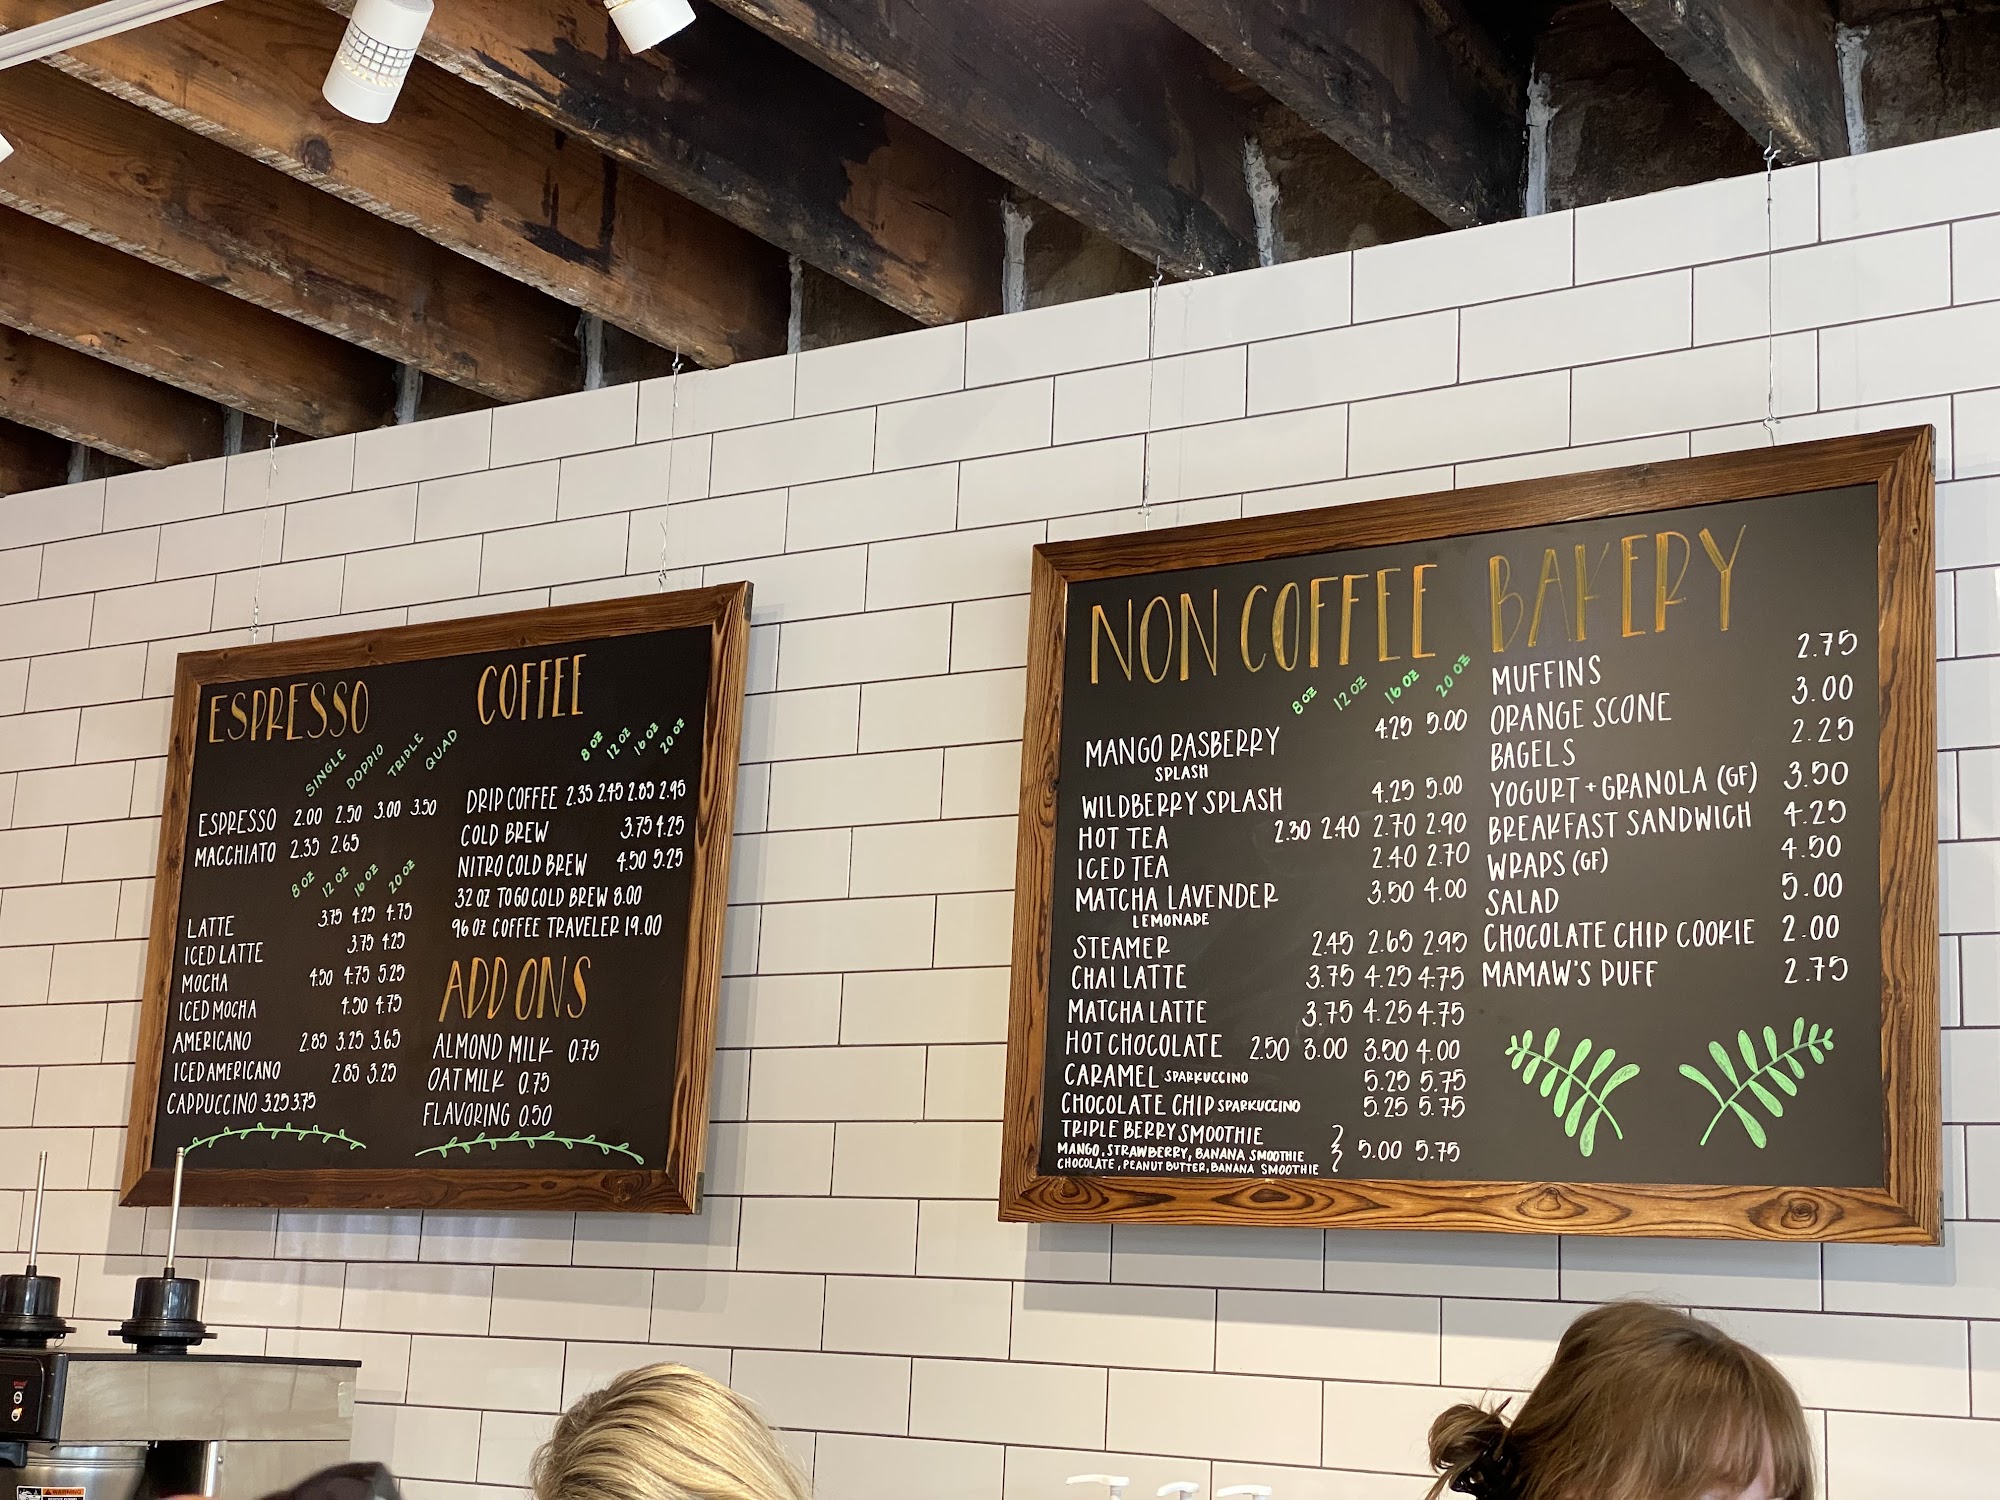 ESPRESSO
SINGLE DOPPIO TRIPLE QUAD
ESPRESSO 2.00 2.50 3.00 3.50
MACCHIATO 2.35 2.65
8 OZ 12 OZ 16 OZ 20 OZ
LATTE 3.75 4.25 4.75
ICED LATTE 3.75 4.25
MOCHA 4.50 4.75 5.25
ICED MOCHA 4.50 4.75
AMERICANO 2.85 3.25 3.65
ICED AMERICANO 2.85 3.25
CAPPUCCINO 3.25 3.75
COFFEE
8 OZ 12 OZ 16 OZ 20 OZ
DRIP COFFEE 2.35 2.45 2.85 2.95
COLD BREW 3.75 4.25
NITRO COLD BREW 4.50 5.25
32 OZ TO GO COLD BREW 8.00
96 OZ COFFEE TRAVELER 19.00
ADD ONS
ALMOND MILK 0.75
OAT MILK 0.75
FLAVORING 0.50
NON COFFEE
8 OZ 12 OZ 16 OZ 20 OZ
MANGO RASBERRY 4.25 5.00
SPLASH
WILDBERRY SPLASH 4.25 5.00
HOT TEA 2.30 2.40 2.70 2.90
ICED TEA 2.40 2.70
MATCHA LAVENDER 3.50 4.00
LEMONADE
STEAMER 2.45 2.65 2.95
CHAI LATTE 3.75 4.25 4.75
MATCHA LATTE 3.75 4.25 4.75
HOT CHOCOLATE 2.50 3.00 3.50 4.00
CARAMEL SPARKUCCINO 5.25 5.75
CHOCOLATE CHIP SPARKUCCINO 5.25 5.75
TRIPLE BERRY SMOOTHIE
MANGO, STRAWBERRY, BANANA SMOOTHIE } 5.00 5.75
CHOCOLATE, PEANUT BUTTER, BANANA SMOOTHIE
BAKERY
MUFFINS 2.75
ORANGE SCONE 3.00
BAGELS 2.25
YOGURT + GRANOLA (GF) 3.50
BREAKFAST SANDWICH 4.25
WRAPS (GF) 4.50
SALAD 5.00
CHOCOLATE CHIP COOKIE 2.00
MAMAW'S PUFF 2.75
WARNING